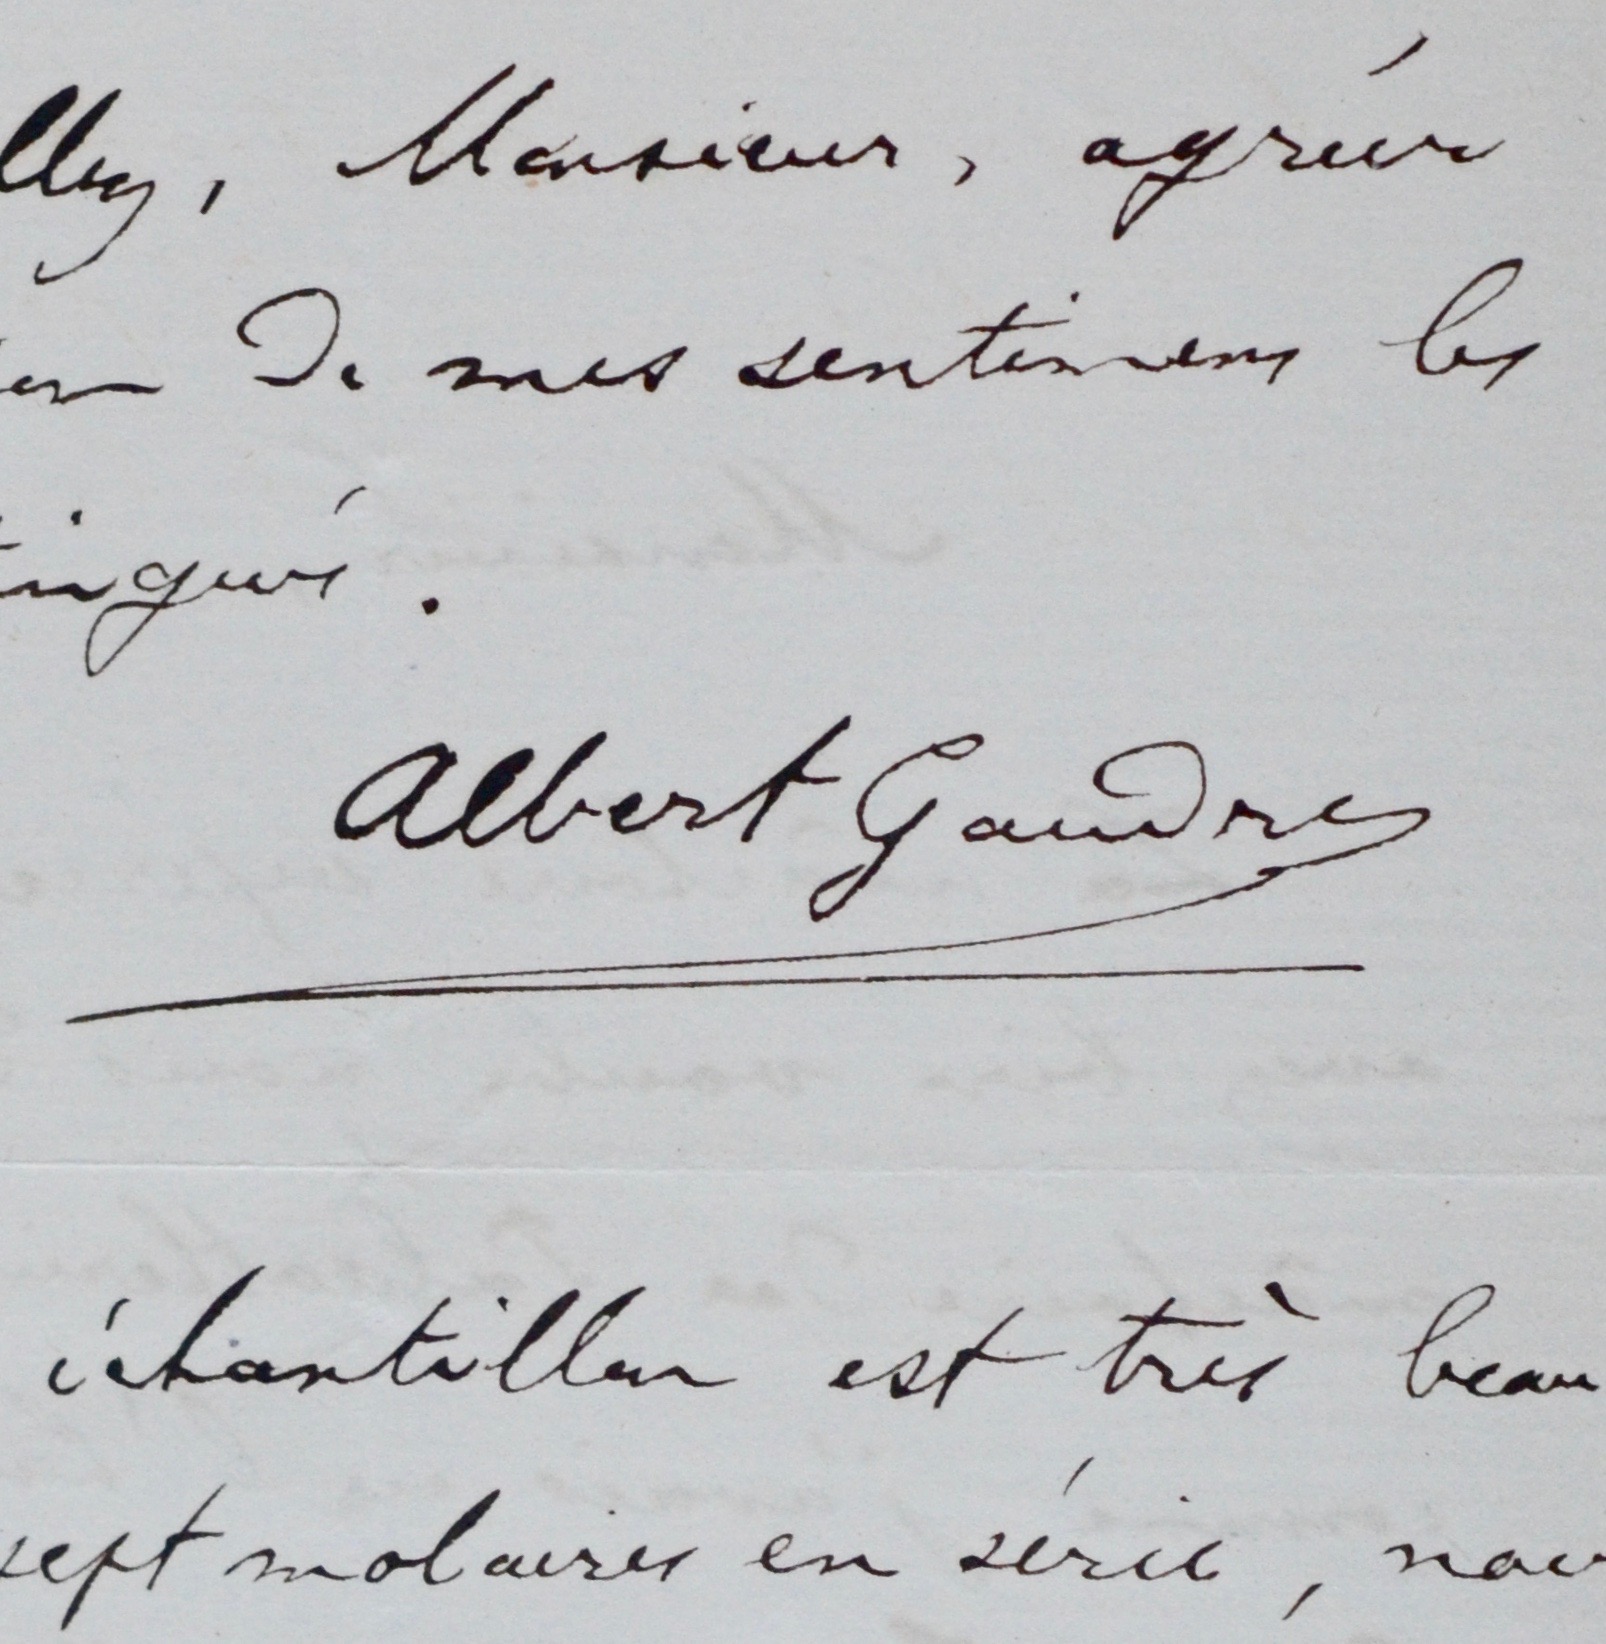 illez, Monsieur, agréer
ion de mes sentimens les
tingués.
Albert Gaudry
échantillon est très beau
sept molaires en série, nou